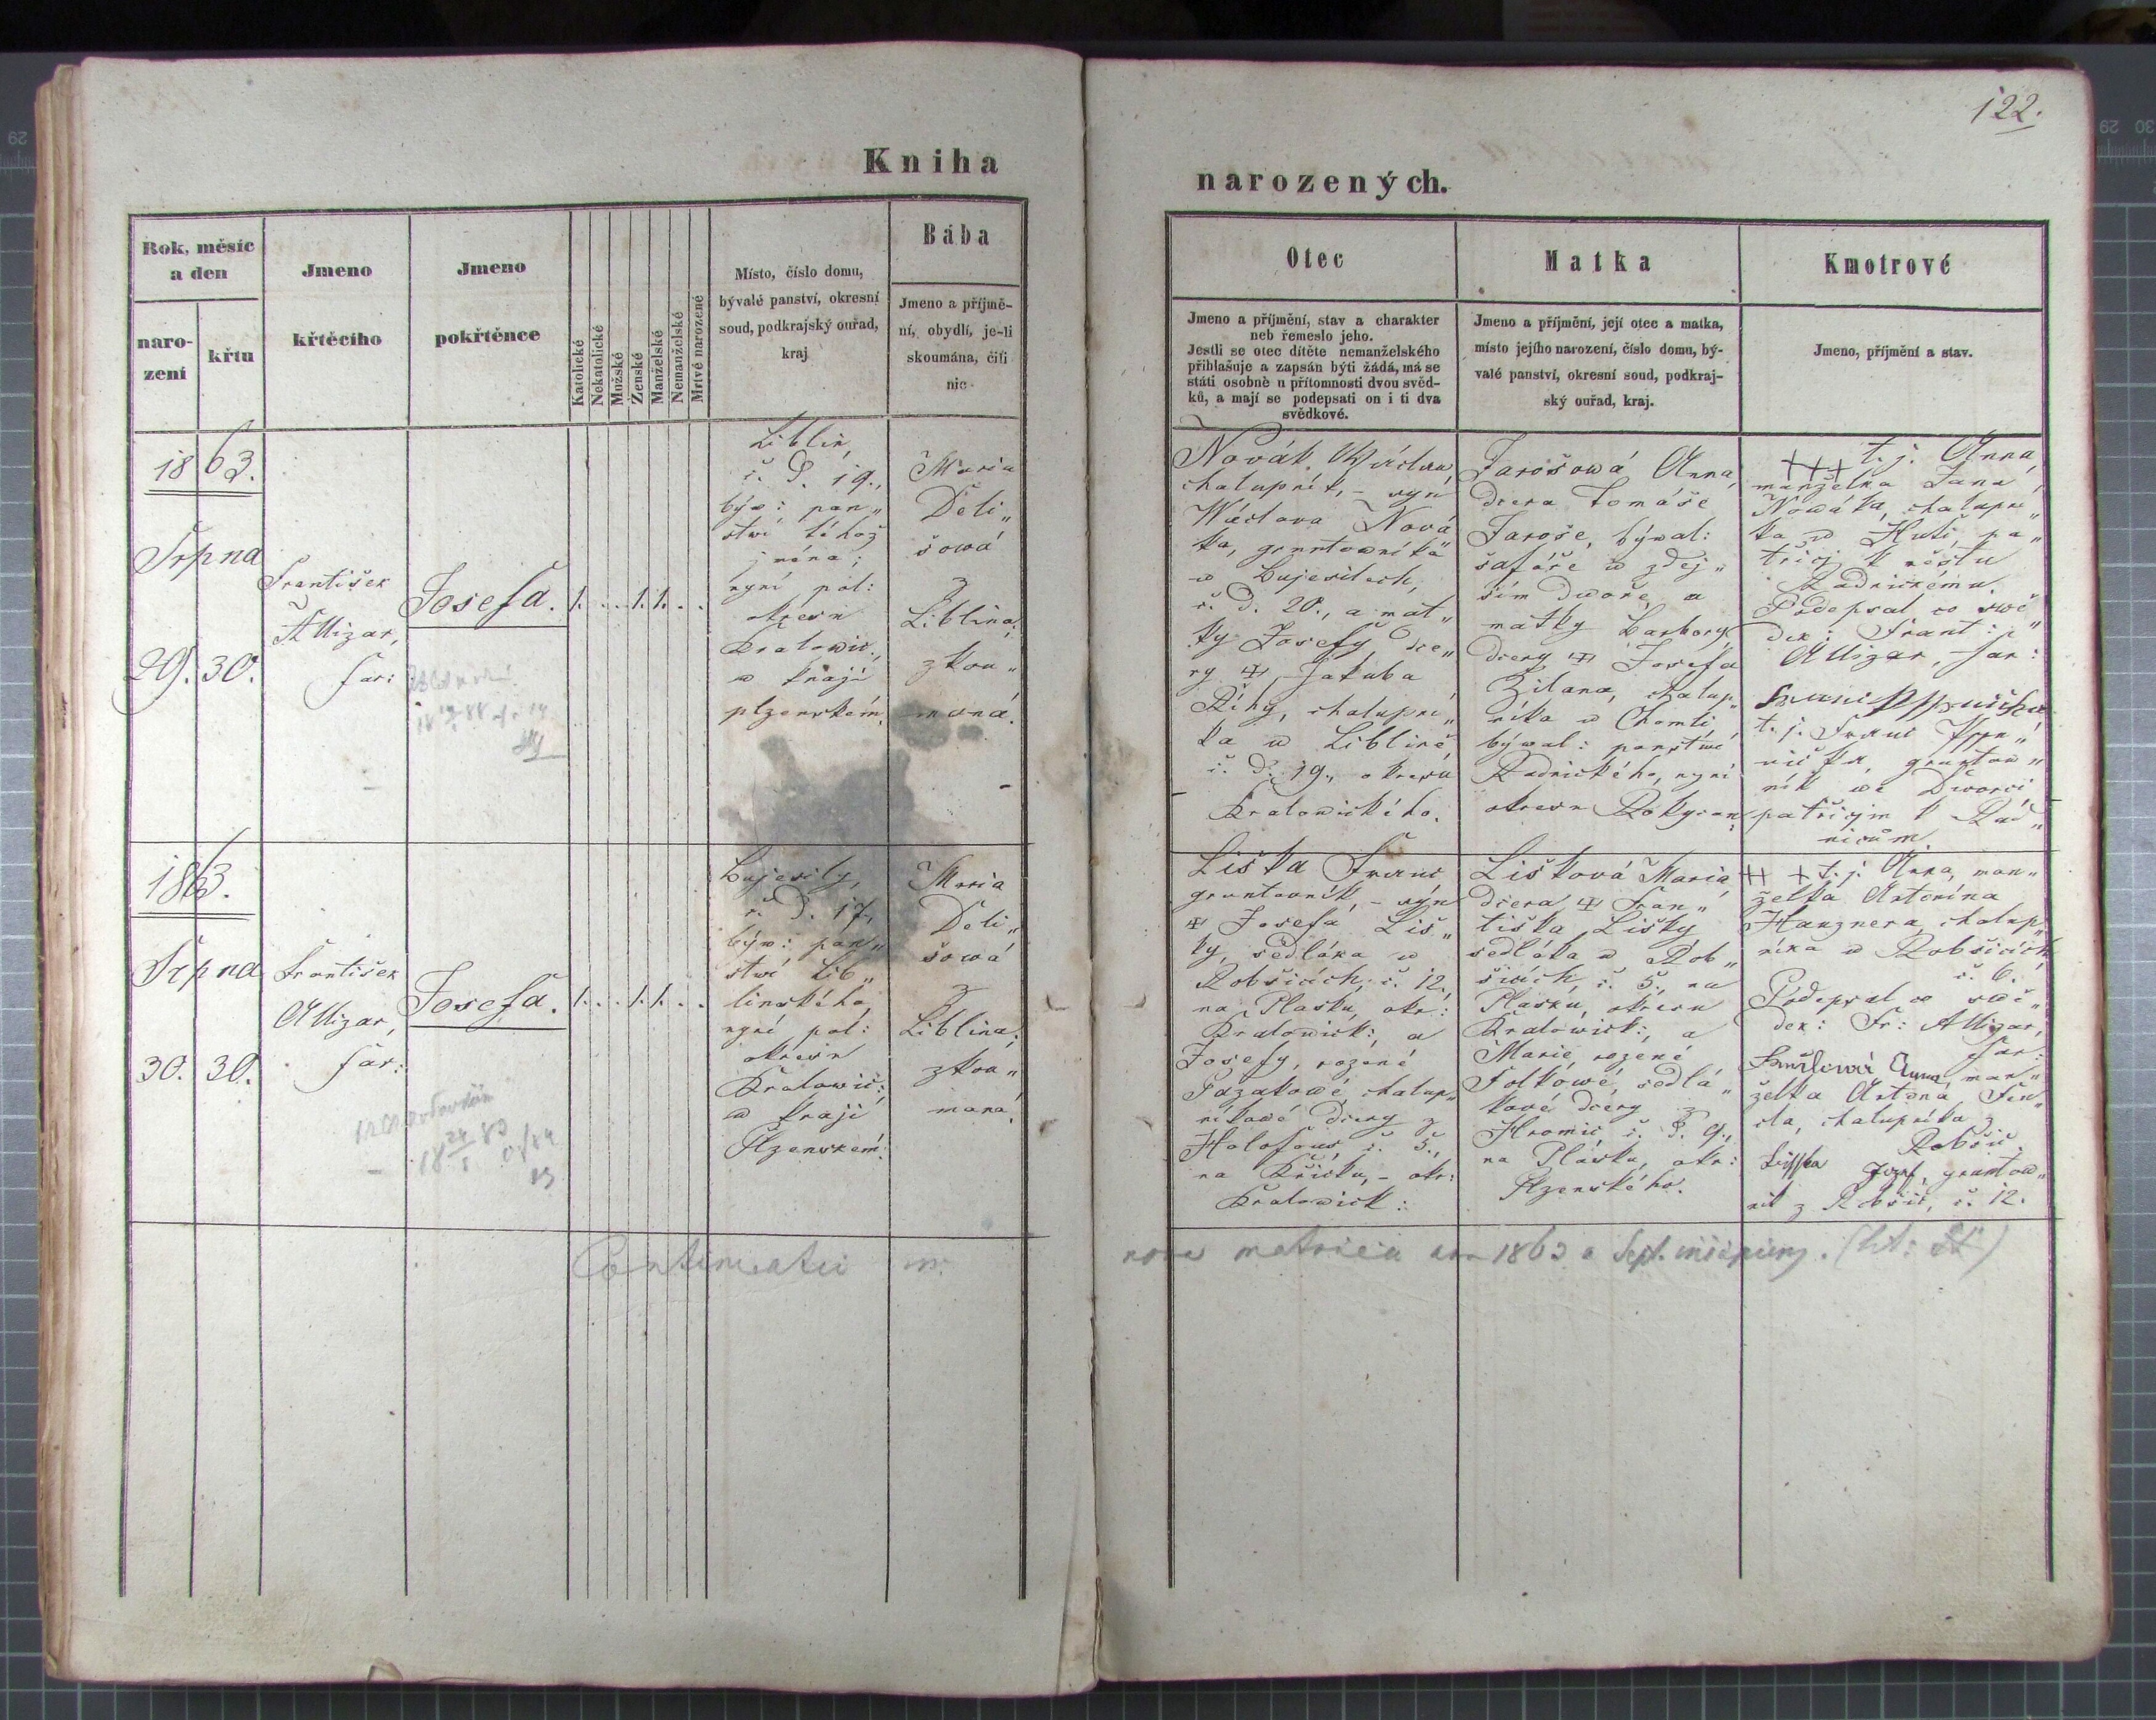 122.
Kniha
narozených.
Rok, měsíc
a den
naro-
zení
křtu
Jmeno
křtěcího
Jmeno
pokřtěnce
Katolické
Nekatolické
Mužské
Ženské
Manželské
Nemanželské
Mrtvě narozené
Místo, číslo domu,
bývalé panství, okresní
soud, podkrajský ouřad,
kraj
Bába
Jmeno a příjmě-
ní, obydlí, je-li
skoumána, čili
nic
Otec
Jmeno a příjmění, stav a charakter
neb řemeslo jeho.
Jestli se otec dítěte nemanželského
přihlašuje a zapsán býti žádá, má se
státi osobně u přítomnosti dvou svěd-
ků, a mají se podepsati on i ti dva
svědkové.
Matka
Jmeno a příjmění, její otec a matka,
místo jejího narození, číslo domu, bý-
valé panství, okresní soud, podkraj-
ský ouřad, kraj.
Kmotrové
Jmeno, příjmění a stav.
1863.
Srpna
29. 30.
František
Allizar,
far:
Josefa.
1. . . 1. 1. . .
Liblín,
č. d. 19.,
býv: pan„
stwí téhož
jména;
nyní pol:
okresu
Kralowic.,
w kraji
plzenském.
Maria
Deli„
šowá
z
Liblína;
zkou„
maná.
Novák Wáclaw
chalupník, – syn
Wáclava Nová
ka, gruntowníka
w Bujesilech,
č. d. 20., a mat„
ky Josefy dce„
ry ☩ Jakuba
Říhy, chalupní„
ka w Liblíně
č. d. 19., okresu
Kralowického.
Jarošowá Anna,
dcera Tomáše
Jaroše, býwal:
šafáře w zdej„
ším dwoře, a
matky Barbory,
dcery ☩ Josefa
Zilana, chalup„
níka w Chomli
býwal: panstwí
Radnického, nyní
okresu Rokycan:
+++ t. j. Anna,
manželka Jana
Nowáka, chalupní„
ka w Huti, pa„
třící k městu
Radnickému.
Podepsal co swě„
dek: Frant:
Allizar, far:
t. j. Franc
gruntow„
ník we Dworci,
patřícím k Rad„
nicům.
1863.
Srpna
30. 30.
František
Allizar,
far:
Josefa.
1. . . 1. 1. . .
Bujesily,
č. d. 17,
býw: pan„
stwí Lib„
línského,
nyní pol:
okresu
Kralowic:
w kraji
Plzenském.
Maria
Deli„
šowá
z
Liblína;
zkou„
maná.
Liška Franc
gruntowník, – syn
☩ Josefa Liš„
ky, sedláka w
Robčicích, č. 12,
na Plasku, okr:
Kralowick: a
Josefy, rozené
Pazakowé, chalup„
níkowé dcery z
Holofous, č. 5.,
na Křicku, – okr:
Kralowick:
Lišková Maria,
dcera ☩ Fran„
tiška Lišky
sedláka w Rob„
šicích, č. 5., na
Plasku, okresu
Kralowick:, a
Marie, rozené
Folkowé, sedlá„
kowé dcery z
Hromic č. d. 9.,
na Plasku, okr:
Plzenského.
++ + t. j. Anna, man„
želka Antonína
Hanznera, chalup„
níka w Robšicích
č. 6.
Podepsal co swě„
dek: Fr: Allizar,
far:
Anna, man„
želka Antona Fen„
cla, chalupníka z
Robšic.
Lišska Josef, gruntow„
ník z Robšic, č. 12.
Continuatio in
nova matrica 1863 a Sept.